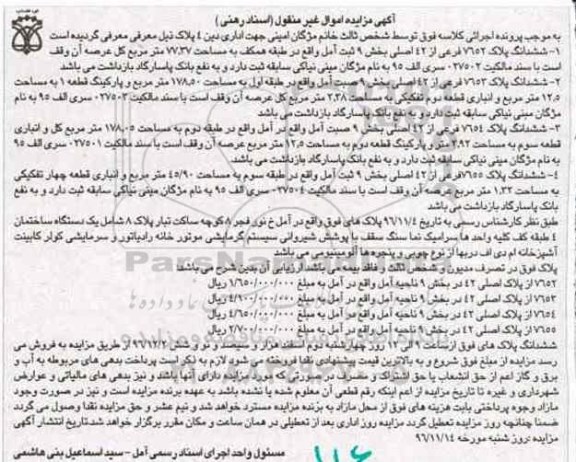 آگهی مزایده اموال غیر منقول (اسناد رهنی)
به موجب پرونده اجرائی کلاسه فوق توسط شخص ثالث خانم مژگان امینی جهت اداری دین 4 پلاک ذیل معرفی معرفی گردیده است
1- ششدانگ پلاک 7652 فرعی از 42 اصلی بخش 9 ثبت آمل واقع در طبقه همکف به مساحت 77،37 متر مربع کل عرصه آن وقف
است با سند مالکیت 037502 سری الف 95 به نام مژگان مبنی نیاکی سابقه ثبت دارد و به نفع بانک پاسارگاد بازداشت می باشد
2- ششدانگ پلاک 7653 فرعی از 42 اصلی بخش 9 صبت آمل واقع در طبقه اول به مساحت 178،50 متر مربع و پارکینگ قطعه 1 به مساحت
12،5 متر مربع و انباری قطعه دوم تفکیکی به مساحت 2،38 متر مربع کل عرصه آن وقف است با سند مالکیت 037503 سری الف 95 به نام
مژگان مبنی نیاکی سابقه ثبت دارد و به نفع بانک پاسارگاد بازداشت می باشد
3- ششدانگ پلاک 7654 فرعی از 42 اصلی بخش 9 صبت آمل واقع در آمل واقع در طبقه دوم به مساحت 178،05 متر مربع کل و انباری
قطعه سوم به مساحت 2،92 متر و پارکینگ قطعه دوم به مساحت 12،5 متر مربع عرصه آن وقف است با سند مالکیت 037501 سری الف 95
به نام مژگان مبنی نیاکی سابقه ثبت دارد و به نفع بانک پاسارگاد بازداشت می باشد.
4- ششدانگ پلاک 7655 فرعی از 42 اصلی بخش 9 ثبت آمل واقع در طبقه سوم به مساحت 45/90 متر مربع و انباری قطعه چهار تفکیکی
به مساحت 1،32 متر مربع عرصه آن وقف است با سند مالکیت 037504 سری الف 95 به نام مژگان مبنی نیاکی سابقه ثبت دارد و به نفع
بانک پاسارگاد بازداشت می باشد
طبق نظر کارشناس رسمی به تاریخ 96/11/4 پلاک های فوق واقع در آمل خ نور فجر 8 کوچه ساکت تبار پلاک 8 شامل یک دستگاه ساختمان
4 طبقه کف کلیه واحد ها سرامیک نما سنگ سقف با پوشش شیروانی سیستم گرمایشی موتور خانه رادیاتور و سرمایشی کولر کابینت
آشپزخانه ام دی اف دربها از نوع چوبی و پنجره ها آلومینیومی می باشد
پلاک فوق در تصرف مدیون و شخص ثالث و فاقد بیمه می باشد ارزیابی آن بدین شرح می باشد:
7652 از پلاک اصلی 42 در بخش 9 ناحیه آمل واقع در آمل به مبلغ 1/650/000/000 ریال
7653 از پلاک اصلی 42 در بخش 9 ناحیه آمل واقع در آمل به مبلغ 4/700/000/000 ریال
7654 از پلاک اصلی 42 در بخش 9 ناحیه آمل واقع در آمل به مبلغ 4/900/000/000 ریال
7655 از پلاک اصلی 42 در بخش 9 ناحیه آمل واقع در آمل به مبلغ 2/700/000/000 ریال
ششدانگ پلاک های فوق از ساعت 9 الی 12 روز چهارشنبه دوم اسفند هزار و سیصد نود و شش 96/12/2 از طریق مزایده به فروش می
رسد مزایده از مبلغ فوق شروع و به بالاترین قیمت پیشنهادی نقدا فروخته می شود لازم به ذکر است پرداخت بدهی های مربوطه به آب و
برق و گاز اعم از حق انشعاب یا حق اشتراک و مصرف در صورتی که مورد مزایده دارای آنها باشد و نیز بدهی های مالیاتی و عوارض
شهرداری و غیره تا تاریخ مزایده از اعم اینکه رقم قطعی آن معلوم شده یا نشده باشد به عهده برنده مزایده است و نیز در صورت وجود
مازاد وجوه پرداختی بابت هزینه های فوق از محل مازاد به برنده مزایده مسترد خواهد شد و نیم عشر و حق مزایده نقدا وصول می گردد
ضمنا چنانچه روز مزایده تعطیل گردد مزایده روز اداری بعد از تعطیلی در همان ساعت و مکان مقرر برگزار خواهد شد.تاریخ انتشار آگهی
مزایده :روز شنبه مورخه 96/11/14
مسئول واحد اجرای اسناد رسمی آمل - سید اسماعیل بنی هاشمی